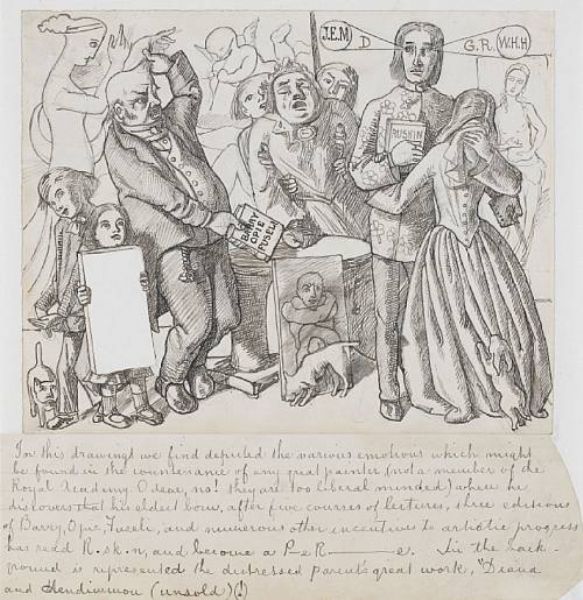 J.E.M
D
G.R.
W.H.H
RUSKIN
BARRY
OPIE
FUSELI
In this drawing we find depicted the various emotions which might
be found in the countenance of any great painter (not a member of the
Royal Academy O dear, no! they are too liberal minded) when he
discovers that his eldest born, after five courses of lectures, three editions
of Barry, Opie, Fuseli, and numerous other incentives to artistic progress
has read R.sk.n, and become a P-e R——e. In the back-
ground is represented the distressed parent's great work, "Diana
and Hendimmon (unsold)(!)